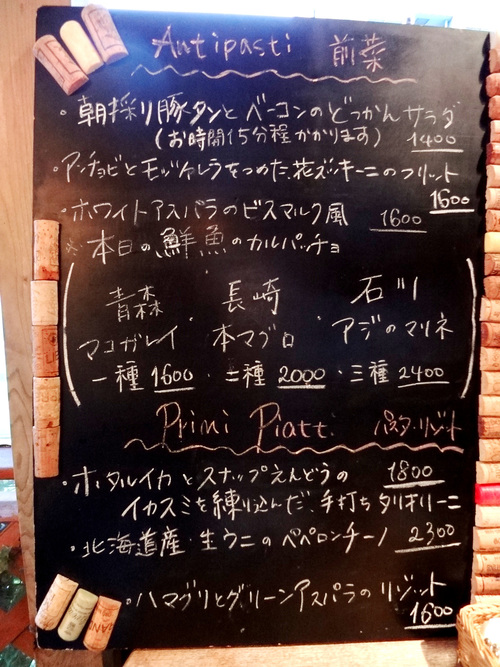 Antipasti 前菜
・朝採り豚タンとベーコンのどっかんサラダ
(お時間15分程かかります) 1400
・アンチョビとモッツァレラをつめた、花ズッキーニのフリット
1600
・ホワイトアスパラのビスマルク風 1600
※本日の鮮魚のカルパッチョ
青森 ・ 長崎 ・ 石川
マコガレイ 本マグロ アジのマリネ
一種 1600 ・ 二種 2000 ・ 三種 2400
Primi Piatti パスタ・リゾット
・ホタルイカとスナップえんどうの 1800
イカスミを練り込んだ、手打ちタリオリーニ
・北海道産・生ウニのペペロンチーノ 2300
・ハマグリとグリーンアスパラのリゾット
1600